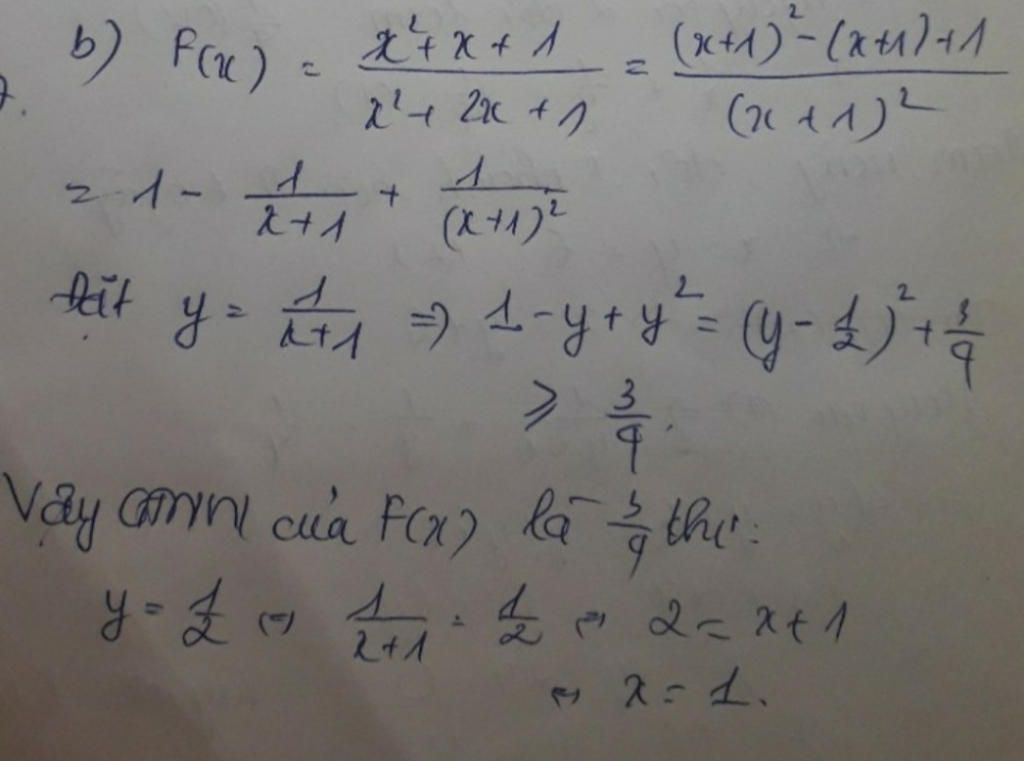 b) F(x) = \frac{x^2 + x + 1}{x^2 + 2x + 1} = \frac{(x+1)^2 - (x+1) + 1}{(x+1)^2}
= 1 - \frac{1}{x+1} + \frac{1}{(x+1)^2}
đặt y = \frac{1}{x+1} => 1 - y + y^2 = (y - \frac{1}{2})^2 + \frac{3}{4}
≥ \frac{3}{4}.
Vậy GTNN của F(x) là \frac{3}{4} thì:
y = \frac{1}{2} ⇔ \frac{1}{x+1} = \frac{1}{2} ⇔ 2 = x+1
⇔ x = 1.